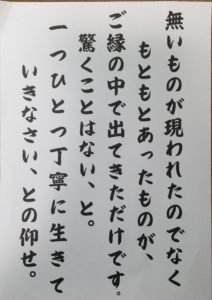 無いものが現われたのでなく
もともとあったものが、
ご縁の中で出てきただけです。
驚くことはない、と。
一つひとつ丁寧に生きて
いきなさい、との仰せ。